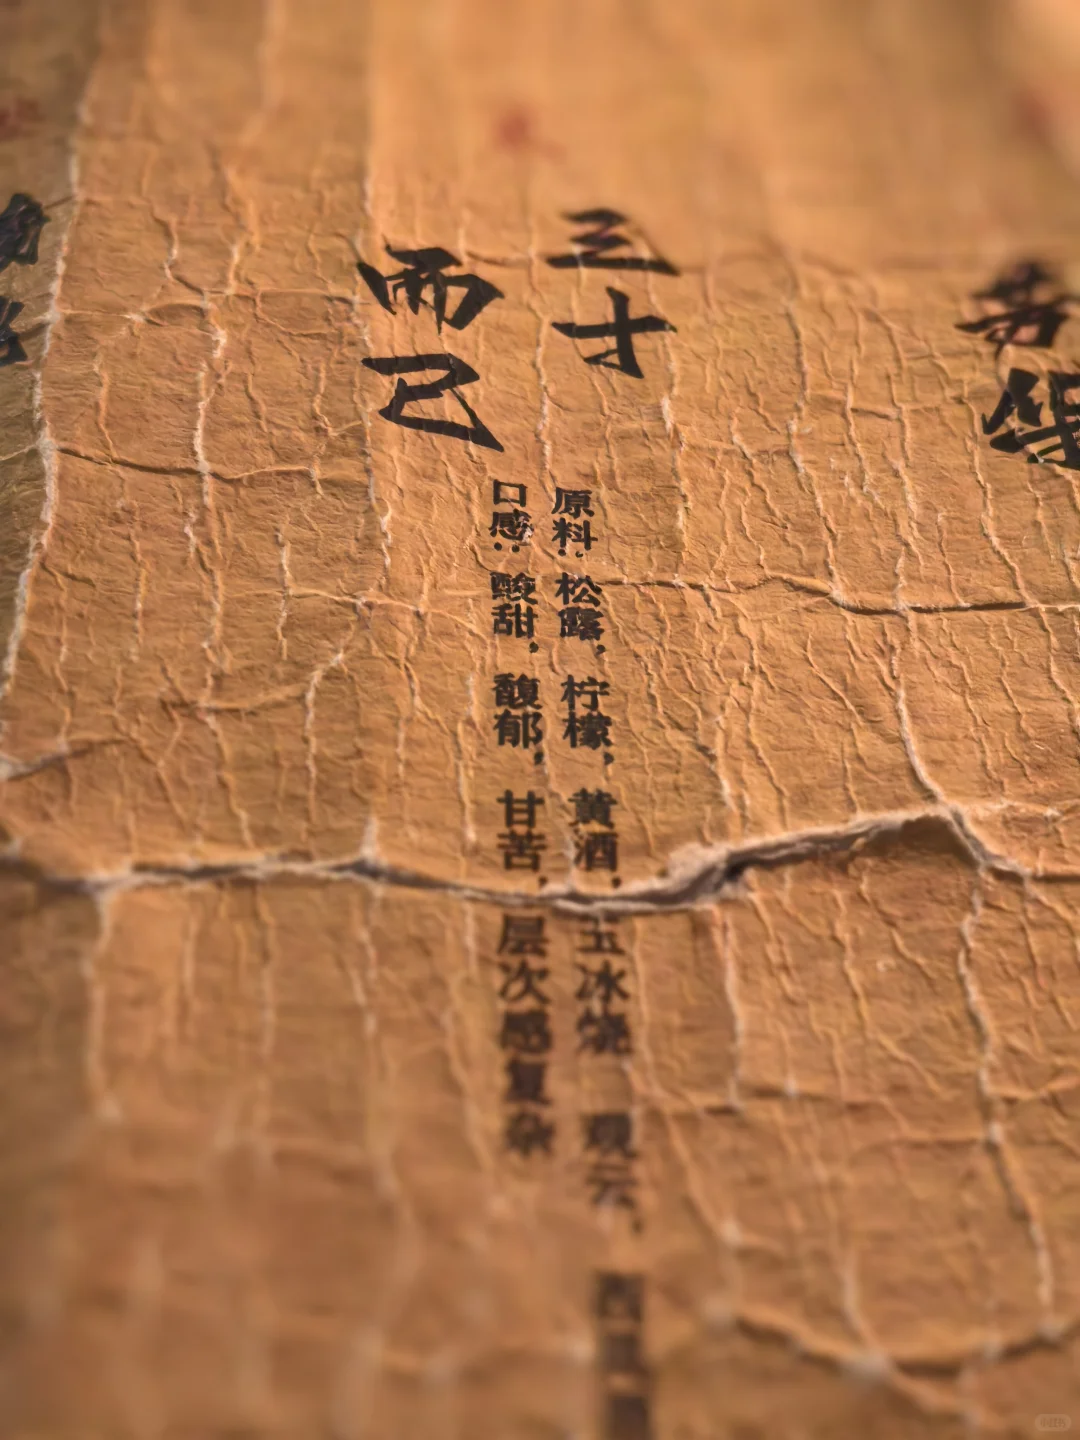 三十
而已
原料：松露，柠檬，黄酒，玉冰烧 观云，
口感：酸甜，馥郁，甘苦，层次感复杂